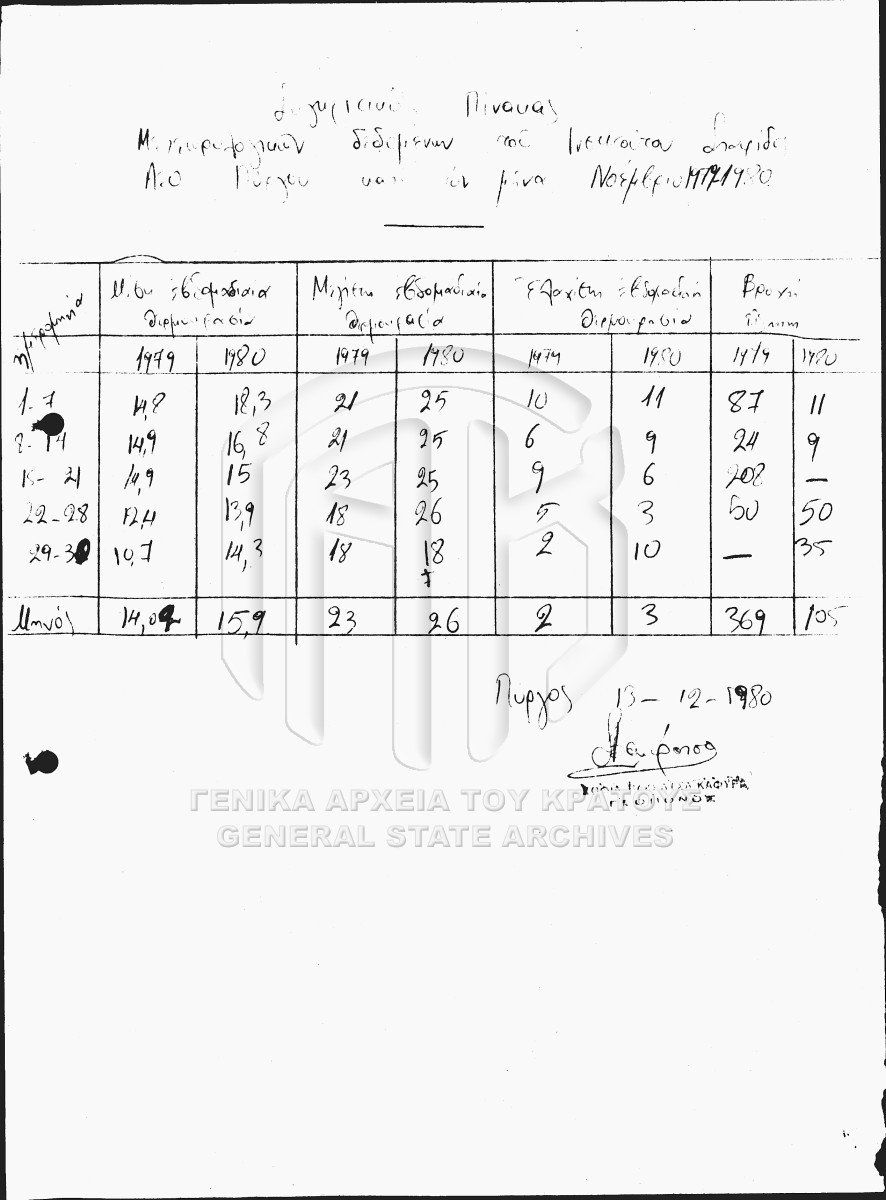 Συγκριτικός Πίνακας
Μετεωρολογικών δεδομένων του Ινστιτούτου Σταφίδος
Πύργου κατά τόν μήνα Νοέμβριο 1979 1980
ημερομηνία Μέση ἑβδομαδιαία θερμοκρασία Μεγίστη ἑβδομαδιαία θερμοκρασία Ἐλαχίστη ἑβδομαδιαία θερμοκρασία Βροχή mm
1979 1980 1979 1980 1979 1980 1979 1980
1-7 14,8 18,3 21 25 10 11 87 11
8-14 14,9 16,8 21 25 6 9 24 9
15-21 14,9 15 23 25 9 6 208 —
22-28 12,4 13,9 18 26 5 3 50 50
29-30 10,7 14,3 18 18 2 10 — 35
Μηνός 14,02 15,9 23 26 2 3 369 105
Πύργος 13-12-1980
ΓΕΩΠΟΝΟΣ
ΓΕΝΙΚΑ ΑΡΧΕΙΑ ΤΟΥ ΚΡΑΤΟΥΣ
GENERAL STATE ARCHIVES